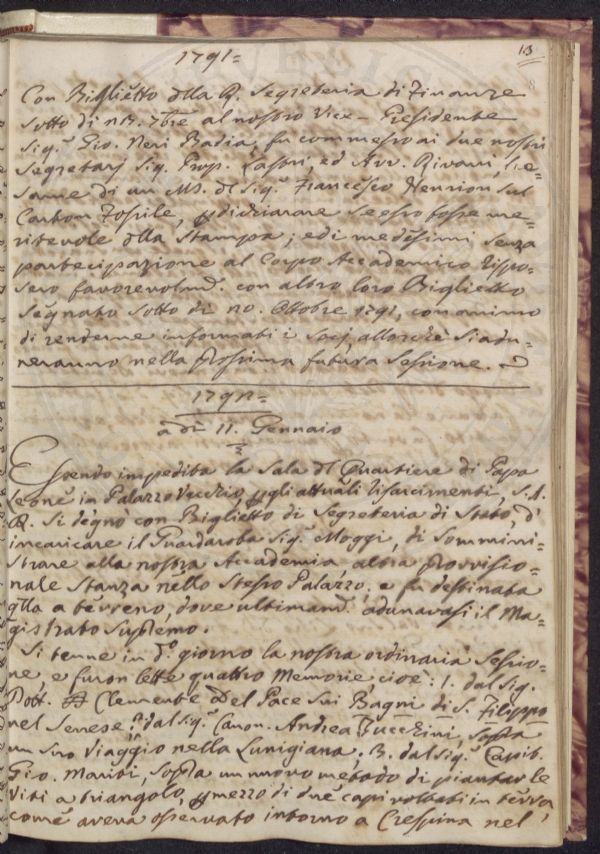 13
1791=
Con Biglietto dlla R. Segreteria di Finanze
sotto di 28. 7bre al nostro Vice-Presidente
Sig.r Gio. Neri Badia, fu commesso ai due nostri
Segretarj Sig. Prop. Lastri, ed Avv. Rivani, l'e=
same di un Ms. dl Sig.r Francesco Henrion sul
Carbon Fossile, p dichiarare se esso fosse me=
ritevole dlla Stampa; ed i medesimi senza
partecipazione al Corpo Accademico rispo=
sero favorevolmd. con altro loro Biglietto
segnato sotto di 20. Ottobre 1791, con animo
di renderne informati i Socj, allorchè si adu=
neranno nella prossima futura Sessione.
1792=
a dì 11. Gennaio
Essendo impedita la Sala dl Quartiere di Papa
Leone in Palazzo Vecchio, p gli attuali risarcimenti, S.A.
R. si degnò con Biglietto di Segreteria di Stato, d'
incaricare il Guardaroba Sig.r Moggi, di sommini=
strare alla nostra Accademia, altra provvisio=
nale Stanza nello stesso Palazzo; e fu destinata
qlla a terreno, dove ultimamd. adunavasi il Ma=
gistrato Supremo.
Si tenne in do. giorno la nostra ordinaria Sessio=
ne, e furon lette quattro Memorie, cioè: 1. dal Sig.
Dott. Clemente Del Pace sui Bagni di S. Filippo
nel Senese; 2. dal Sig.r Canon. Andrea Zucchini, sopra
un suo Viaggio nella Lunigiana; 3. dal Sig.r Capit.
Gio. Mariti, sopra un nuovo metodo di piantar le
Viti a triangolo, p mezzo di due capi voltati in terra,
come aveva osservato intorno a Crespina nel